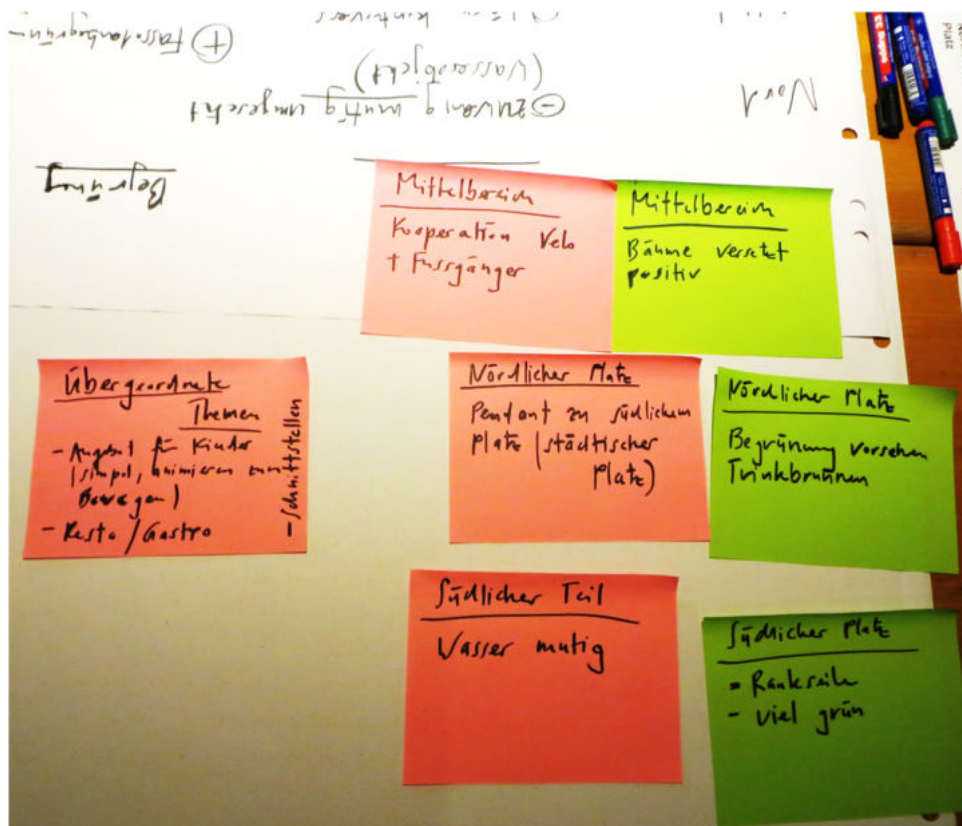 ⊕ Fassadenbegrün-
kontrovers
(Wasserobjekt)
⊖ zu wenig mutig umgesetzt
Nord
Begrünung
Mittelbereich
Kooperation Velo
+ Fussgänger
Mittelbereich
Bäume versetzt
positiv
Übergeordnete
Themen
- Angebot für Kinder
(simpel, animieren zum
Bewegen)
- Resto / Gastro
- Schnittstellen
Nördlicher Platz
Pendant zu südlichem
Platz (städtischer
Platz)
Nördlicher Platz
Begrünung vorsehen
Trinkbrunnen
Südlicher Teil
Wasser mutig
Südlicher Platz
- Rankseile
- viel grün